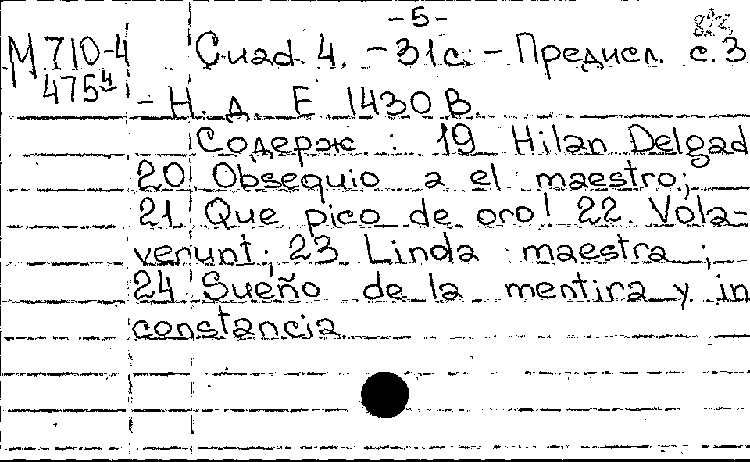 -5-
М 710-4 Cuad. 4. - 31с. - Предисл. с.3
475⁴ - Н. д. Е 1430 В.
Содерж : 19 Hilan Delgad
20 Obsequio a el maestro;
21 Que pico de oro! 22. Vola-
verunt; 23 Linda maestra ;
24 Sueño de la mentira y in
constancia